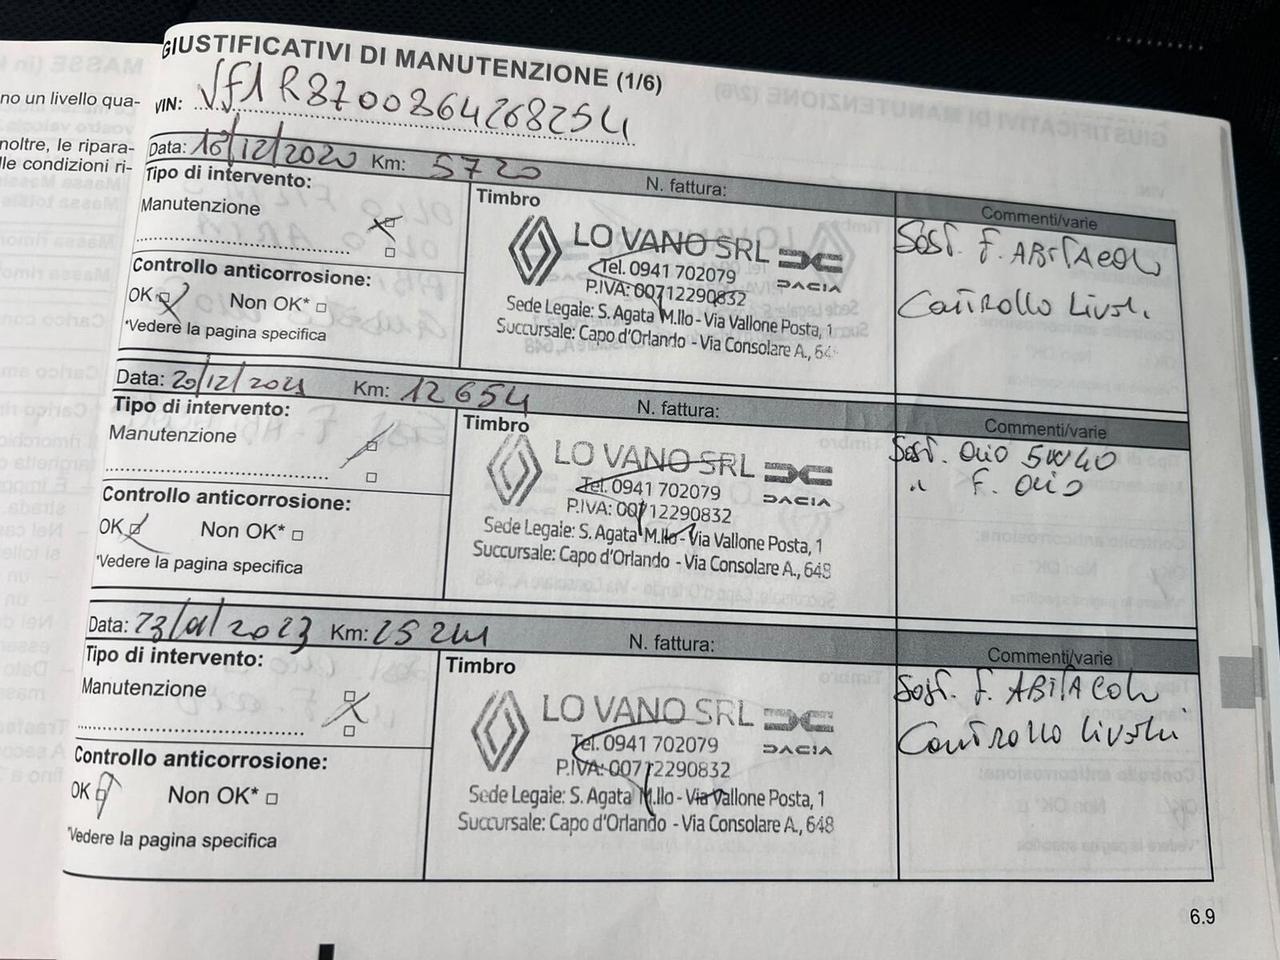 GIUSTIFICATIVI DI MANUTENZIONE (1/6)
VIN: Vf1R8700864268254
no un livello qua-
noltre, le ripara-
lle condizioni ri-
Data: 18/12/2020 Km: 5720 N. fattura:
Tipo di intervento:
Manutenzione
Controllo anticorrosione:
OK Non OK*
*Vedere la pagina specifica
Timbro
LO VANO SRL
DACIA
Tel. 0941 702079
P.IVA: 00712290832
Sede Legale: S. Agata M.llo - Via Vallone Posta, 1
Succursale: Capo d'Orlando - Via Consolare A., 64
Commenti/varie
Sost. F. ABITACOLO
Controllo Livelli
Data: 20/12/2021 Km: 12654 N. fattura:
Tipo di intervento:
Manutenzione
Controllo anticorrosione:
OK Non OK*
*Vedere la pagina specifica
Timbro
LO VANO SRL
DACIA
Tel. 0941 702079
P.IVA: 00712290832
Sede Legale: S. Agata M.llo - Via Vallone Posta, 1
Succursale: Capo d'Orlando - Via Consolare A., 648
Commenti/varie
Sost. Olio 5W40
" F. Olio
Data: 23/01/2023 Km: 25244 N. fattura:
Tipo di intervento:
Manutenzione
Controllo anticorrosione:
OK Non OK*
*Vedere la pagina specifica
Timbro
LO VANO SRL
DACIA
Tel. 0941 702079
P.IVA: 00712290832
Sede Legale: S. Agata M.llo - Via Vallone Posta, 1
Succursale: Capo d'Orlando - Via Consolare A., 648
Commenti/varie
Sost. F. ABITACOLO
Controllo Livelli
6.9